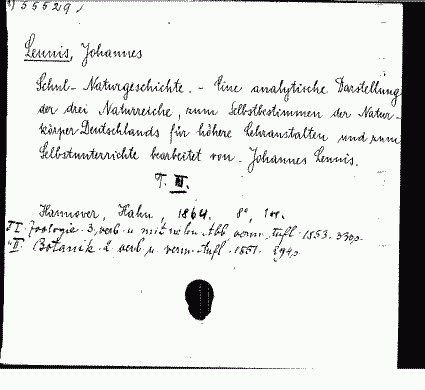 55529.
Leunis, Johannes
Schul-Naturgeschichte. - Eine analytische Darstellung
der drei Naturreiche, zum Selbstbestimmen der Natur-
körper Deutschlands für höhere Lehranstalten und zum
Selbstunterrichte bearbeitet von Johannes Leunis.
T. III.
Hannover, Hahn, 1864. 8°,
T I. Zoologie. 3, verb. u. mit Abb. verm. Aufl. 1853.
" II. Botanik. 2. verb. u. verm. Aufl. 1851.